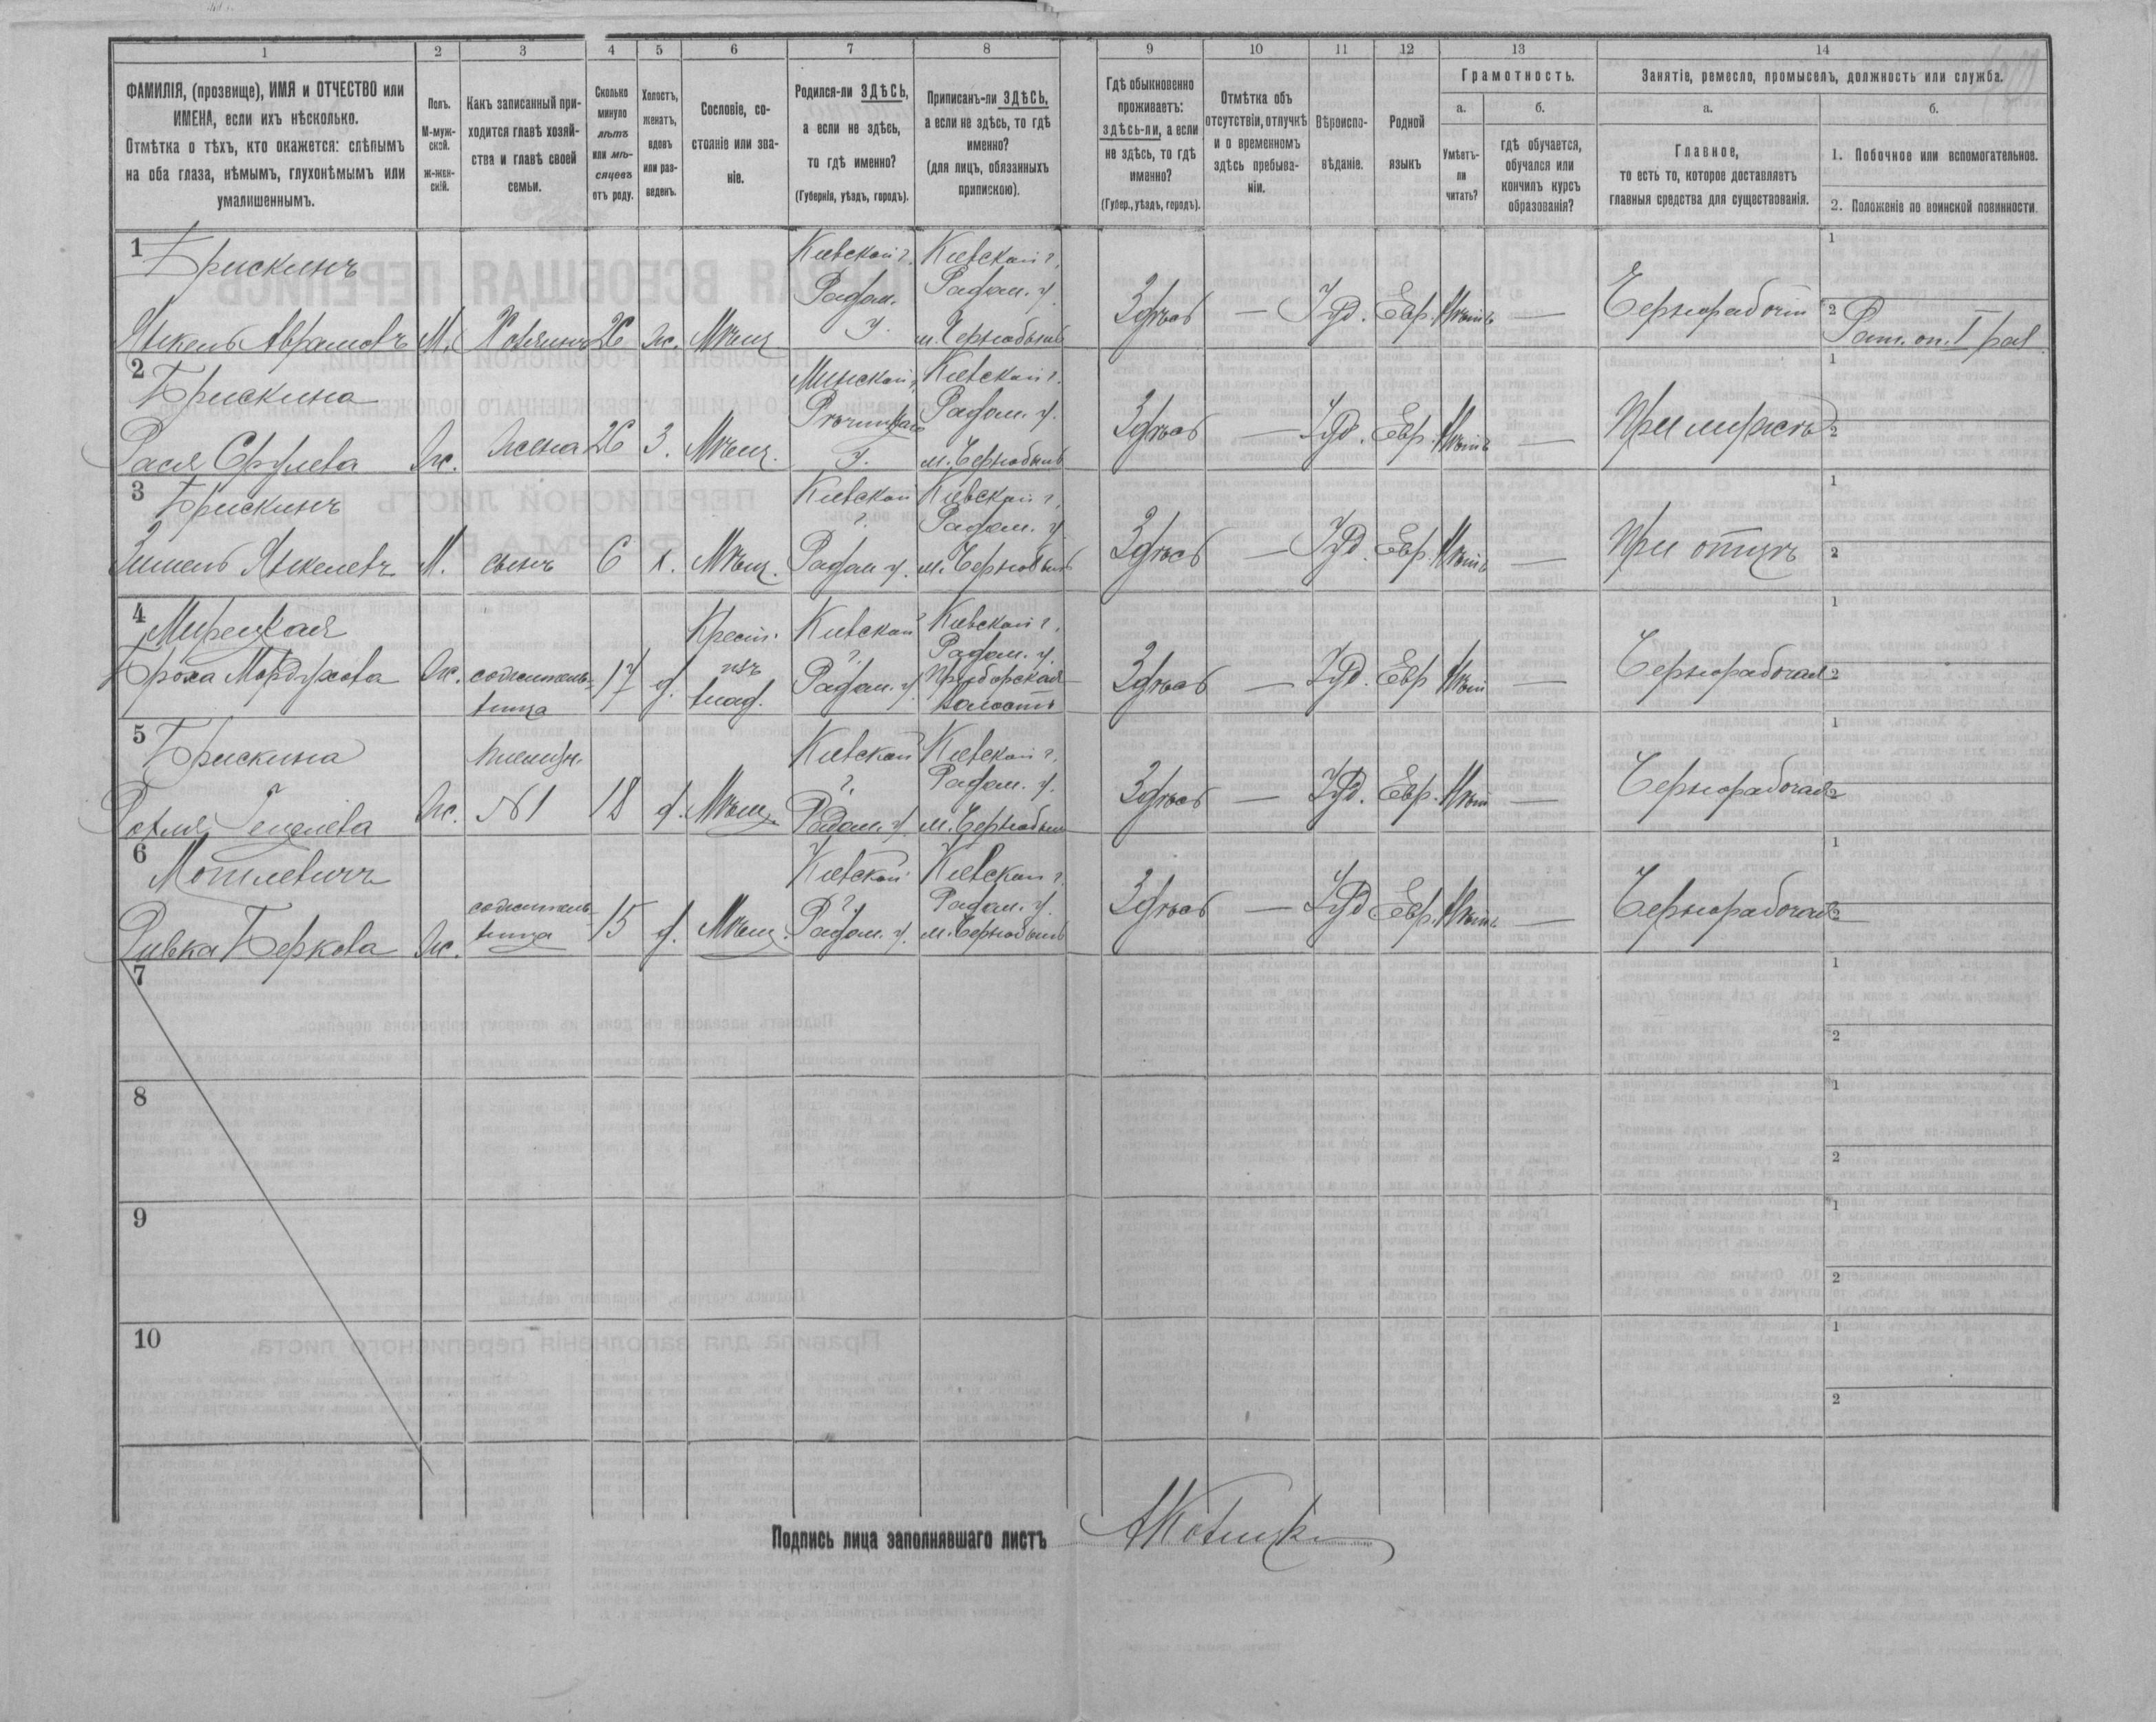 1 2 3 4 5 6 7 8 9 10 11 12 13 14
ФАМИЛІЯ, (прозвище), ИМЯ и ОТЧЕСТВО или
ИМЕНА, если ихъ нѣсколько.
Отмѣтка о тѣхъ, кто окажется: слѣпымъ
на оба глаза, нѣмымъ, глухонѣмымъ или
умалишеннымъ.
Полъ.
М-муж-
ской.
Ж-жен-
скій.
Какъ записанный при-
ходится главѣ хозяй-
ства и главѣ своей
семьи.
Сколько
минуло
лѣтъ
или мѣ-
сяцевъ
отъ роду.
Холостъ,
женатъ,
вдовъ
или раз-
веденъ.
Сословіе, со-
стояніе или зва-
ніе.
Родился-ли ЗДѢСЬ,
а если не здѣсь,
то гдѣ именно?
(Губернія, уѣздъ, городъ).
Приписанъ-ли ЗДѢСЬ,
а если не здѣсь, то гдѣ
именно?
(для лицъ, обязанныхъ
припискою).
Гдѣ обыкновенно
проживаетъ:
здѣсь-ли, а если
не здѣсь, то гдѣ
именно?
(Губер., уѣздъ, городъ).
Отмѣтка объ
отсутствіи, отлучкѣ
и о временномъ
здѣсь пребыва-
ніи.
Вѣроиспо-
вѣданіе.
Родной
языкъ
Грамотность.
а.
Умѣетъ-
ли
читать?
б.
гдѣ обучается,
обучался или
кончилъ курсъ
образованія?
Занятіе, ремесло, промыселъ, должность или служба.
а.
Главное,
то есть то, которое доставляетъ
главныя средства для существованія.
б.
1. Побочное или вспомогательное.
2. Положеніе по воинской повинности.
1
Брискинъ
Янкель Абрамовъ М. Хозяинъ 26 ж. Мѣщ.
Кіевской г.
Радом.
у.
Кіевской г.
Радом. у.
м. Чернобыль
Здѣсь — Іуд. Евр. Нѣтъ — Чернорабочій
1
2 Рат. оп. I раз.
2
Брискина
Рася Срулева Ж. Жена 26 З. Мѣщ.
Минской г.
Рѣчицкаго
у.
Кіевской г.
Радом. у.
м. Чернобыль
Здѣсь — Іуд. Евр. Нѣтъ — При мужѣ
1
2
3
Брискинъ
Зимель Янкелевъ М. сынъ 6 х. Мѣщ.
Кіевской
г.
Радом у.
Кіевской г.
Радом. у.
м. Чернобыль
Здѣсь — Іуд. Евр. Нѣтъ — При отцѣ
1
2
4
Мирецкая
Броха Мордухова Ж.
сожитель-
ница
17 д.
Крест.
изъ
влад.
Кіевской
г.
Радом. у.
Кіевской г.
Радом. у.
Приборская
волость
Здѣсь — Іуд. Евр Нѣт — Чернорабочая
1
2
5
Брискина
Гемелева Ж.
племян.
№1
18 д. Мѣщ.
Кіевской
г.
Радом. у.
Кіевской г.
Радом. у.
м. Чернобыль
Здѣсь — Іуд. Евр. Нѣт — Чернорабочая
1
2
6
Могилевичъ
Ривка Беркова Ж.
сожитель-
ница
15 д. Мѣщ.
Кіевской
г.
Радом. у.
Кіевской г.
Радом. у.
м. Чернобыль
Здѣсь — Іуд Евр. Нѣтъ — Чернорабочая
1
2
7
1
2
8
1
2
9
1
2
10
1
2
Подпись лица заполнявшаго листъ